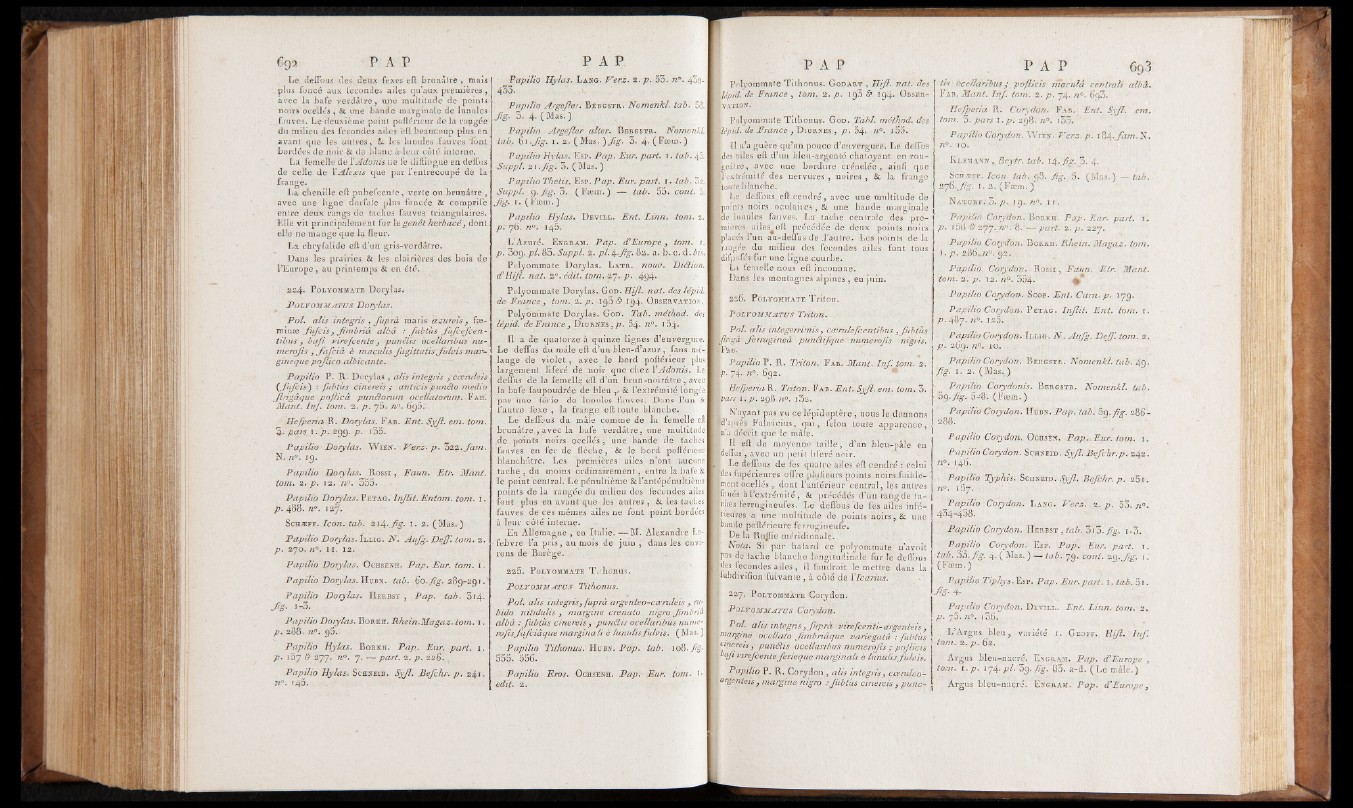 692 PAP
Le dessous des deux sexes est brunâtre, mais
plus foncé aux secondes ailes qu'aux premières,
avec la base verdâtre, une multitude de points
noirs ocellés, & une bande marginale de lunules
fauves. Le deuxième point postérieur de la rangée
du milieu des secondes ailes est beaucoup plus en
avant que les autres, & les lunules fauves sont
bordées de noir & de blanc à leur côté interne.
La femelle de l'Adonis ne se distingue en dessus
de celle de l'Alexis que par l'entrecoupé de la
frange.
La chenille est pubescente, verte ou brunâtre,
avec une ligne dorsale plus foncée & comprise
entre deux rangs de taches fauves triangulaires.
Elle vit principalement sur le genêt herbacé, dont
elle ne mange que la fleur.
La chrysalide est d'un gris-verdâtre.
Dans les prairies & les clairières des bois de
l'Europe, au printemps & en été.
224. POLYOMMATE Dorylas.
POLYOMMATUS Dorylas.
Pol. alis integris, suprà maris azureis, fœ-
minæ fuscis, fimbriâ albâ : subtùs fuscescen-
tibus, basi virescente, punctis ocellaribus nu-
merosis, fasciâ è maculis sagittatis fulvis mar-
gineque postico albicante.
Papilio P. R. Dorylas, alis integris, cœruleis
(fuscis) : subtùs cinereis : anticis puncto medio
strigâque posticâ punctorum ocellatorum. FAB.
Mant. Ins. tom. 2. p. 75. n°. 695.
Hesperia R. Dorylas. FAB. Ent. Syst. em. tom.
3. pars 1. p. 299. p. 133.
Papilio Dorylas. WIEN. Verz. p. 322. fam.
N. n°. 19.
Papilio Dorylas. ROSSI, Faun. Etr. Mant.
tom. 2. p. 12. n°. 355.
Papilio Dorylas. PETAG. Instit. Entom. tom. 1.
p. 488. n°. 127.
SCHÆFF. Icon. tab. 214. fig. 1. 2. (Mas.)
Papilio Dorylas. ILLIG. N. Ausg. Deff. tom. 2.
p. 270. n°. 11. 12.
Papilio Dorylas. OCHSENH. Pap. Eur. tom. 1.
Papilio Dorylas. HUBN. tab. 60. fig. 289-291.
Papilio Dorylas. HERBST, Pap. tab. 314.
fig. 1-3.
Papilio Dorylas. BORKH. Rhein. Magaz. tom. 1.
p. 288. n°. 95.
Papilio Hylas. BORKH. Pap. Eur. part. 1.
p. 157 & 277. n°. 7. — part. 2. p. 226.
Papilio Hylas. SCHNEID. Syst. Beschr. p. 241.
n°. 145.
PAP
Papilio Hylas. LANG. Verz. 2. p. 53. n°. 430-
433.
Papilio Argestor. BERGSTR. Nomenkl. tab. 58.
fig. 3. 4. (Mas.)
Papilio Argestor alter. BERGSTR. Nomenkl.
tab. 61. fig. 1. 2. (Mas.) fig. 3. 4. (Fœm.)
Papilio Hylas. ESP. Pap. Eur. part. 1. tab. 45.
Suppl. 21. fig. 3. (Mas.)
Papilio Thetis. ESP. Pap. Eur. part. 1. tab. 32.
Suppl. 9. fig. 3. (Fœm.) — tab. 55. cont. 5.
fig. 1. (Fœm.)
Papilio Hylas. DEVILL. Ent. Linn. tom. 2.
p. 76. n°. 145.
L'Azuré. ENGRAM. Pap. d'Europe, tom. 1.
p. 309. pl. 83. Suppl. 2. pl. 4. fig. 82. a. b. c. d. bis.
Polyommate Dorylas. LATR. nouv. Diction.
d'Hist. nat. 2e. édit. tom. 27. p. 494.
Polyommate Dorylas. GOD. Hist. nat. des lépid.
de France, tom. 2. p. 193 & 194. OBSERVATION.
Polyommate Dorylas. GOD. Tab. méthod. des
lépid. de France, DIURNES, p. 54. n°. 154.
Il a de quatorze à quinze lignes d'envergure.
Le dessus du mâle est d'un bleu-d'azur, sans mé-
lange de violet, avec le bord postérieur plus
largement liseré de noir que chez l'Adonis. Le
dessus de la femelle est d'un brun-noirâtre, avec
la base saupoudrée de bleu, & l'extrémité longée
par une série de lunules fauves. Dans l'un &
l'autre sexe, la frange est toute blanche.
Le dessous du mâle comme de la femelle est
brunâtre, avec la base verdâtre, une multitude
de points noirs ocellés, une bande de taches
fauves en fer de flèche, & le bord postérieur
blanchâtre. Les premières ailes n'ont aucune
tache, du moins ordinairement, entre la base &
le point central. Le pénultième & l'antépénultième
points de la rangée du milieu des secondes ailes
sont plus en avant que les autres, & les taches
fauves de ces mêmes ailes ne sont point bordées
à leur côté interne.
En Allemagne, en Italie. — M. Alexandre Le-
febvre l'a pris, au mois de juin, dans les envi-
rons de Barège.
225. POLYOMMATE Tithonus.
POLYOMMATUS Tithonus.
Pol. alis integris, suprà argenteo-cæruleis, ru-
bido nitidulis, margine crenato nigro fimbriâ
albâ : subtùs cinereis, punctis ocellaribus nume-
rosis fasciâque marginali è lunulis fulvis. (Mas.)
Papilio Tithonus. HUBN. Pap. tab. 108. fig.
555. 556.
Papilio Eros. OCHSENH. Pap. Eur. tom. 1.
edit. 2.
PAP
Polyommate Tithonus. GODART, Hist. nat. des
lépid. de France, tom. 2. p. 193 & 194. OBSER-
VATION.
Polyommate Tithonus. GOD. Tabl. méthod. des
lépid. de France, DIURNES, p. 54. n°. 155.
Il n'a guère qu'un pouce d'envergure. Le dessus
des ailes est d'un bleu-argenté chatoyant en rou-
geâtre, avec une bordure crénelée, ainsi que
l'extrémité des nervures, noires, & la frange
toute blanche.
Le dessous est cendré, avec une multitude de
points noirs oculaires, & une bande marginale
de lunules fauves. La tache centrale des pre-
mières ailes est précédée de deux points noirs
placés l'un au-dessus de l'autre. Les points de la
rangée du milieu des secondes ailes sont tous
disposés sur une ligne courbe.
La femelle nous est inconnue.
Dans les montagnes alpines, en juin.
226. POLYOMMATE Triton.
POLYOMMATUS Triton.
Pol. alis integerrimis, cærulescentibus, subtùs
strigâ ferrugineâ punctisque numerosis nigris.
FAB.
Papilio P. R. Triton. FAB. Mant. Ins. tom. 2.
p. 74. n°. 692.
Hesperia R. Triton. FAB. Ent. Syst. em. tom. 3.
pars 1. p. 298 n°. 132.
N'ayant pas vu ce lépidoptère, nous le donnons
d'après Fabricius, qui, selon toute apparence,
n'a décrit que le mâle.
Il est de moyenne taille, d'un bleu-pâle en
dessus, avec un petit liseré noir.
Le dessous de ses quatre ailes est cendré : celui
des supérieures offre plusieurs points noirs foible-
ment ocellés, dont l'antérieur central, les autres
situés à l'extrémité, & précédés d'un rang de ta-
ches ferrugineuses. Le dessous de ses ailes infé-
rieures a une multitude de points noirs, & une
bande postérieure ferrugineuse.
De la Russie méridionale.
Nota. Si par hasard ce polyommate n'avoit
pas de tache blanche longitudinale sur le dessous
des secondes ailes, il faudroit le mettre dans la
subdivision suivante, à côté de l'Icarius.
227. POLYOMMATE Corydon.
POLYOMMATUS Corydon.
Pol. alis integris, suprà virescenti-argenteis,
margine ocellato fimbriâque variegatâ : subtùs
cinereis, punctis ocellaribus numerosis : posticis
basi virescente serieque marginali è lunulis fulvis.
Papilio P. R. Corydon, alis integris, cœruleo-
argenteis, margine nigro : subtùs cinereis, punc-
PAP 693
tis ocellaribus ; posticis maculâ centrali albâ.
FAB. Mant. Ins. tom. 2. p. 74. n°. 693.
Hesperia R. Corydon. FAB. Ent. Syst. em.
tom. 3. pars 1. p. 298. n°. 133.
Papilio Corydon. WIEN. Verz. p. 184. fam. N.
n°. 10.
KLEMANN, Beytr. tab. 14. fig. 3. 4.
SCHÆFF. Icon. tab. 98. fig. 5. (Mas.) — tab.
276. fig. 1. 2. (Fœm.)
NATURF. 3. p. 19. n°. 11.
Papilio Corydon. BORKH. Pap. Eur. part. 1.
p. 158 & 277. n°. 8. — part. 2. p. 227.
Papilio Corydon. BORKH. Rhein. Magaz. tom.
1. p. 286. n°. 92.
Papilio Corydon. ROSSI, Faun. Etr. Mant.
tom. 2. p. 12. n°. 354.
Papilio Corydon. SCOP. Ent. Carn. p. 179.
Papilio Corydon. PETAG. Instit. Ent. tom. 1.
p. 487. n°. 125.
Papilio Corydon. ILLIG. N. Ausg. Deff. tom. 2.
p. 269. n°. 10.
Papilio Corydon. BERGSTR. Nomenkl. tab. 49.
fig. 1. 2. (Mas.)
Papilio Corydonis. BERGSTR. Nomenkl. tab.
59. fig. 5-8. (Fœm.)
Papilio Corydon. HUBN. Pap. tab. 59. fig. 286-
288.
Papilio Corydon. OCHSEN. Pap. Eur. tom. 1.
Papilio Corydon. SCHNEID. Syst. Beschr. p. 242.
n°. 146.
Papilio Typhis. SCHNEID. Syst. Beschr. p. 251.
n°. 157.
Papilio Corydon. LANG. Verz. 2. p. 53. n°.
434-438.
Papilio Corydon. HERBST, tab. 313. fig. 1-3.
Papilio Corydon. ESP. Pap. Eur. part. 1.
tab. 33. fig. 4. (Mas.) — tab. 79. cont. 29. fig. 1.
(Fœm.)
Papilio Tiphys. ESP. Pap. Eur. part. 1. tab. 51.
fig. 4.
Papilio Corydon. DEVILL. Ent. Linn. tom. 2.
p. 73. n°. 136.
L'Argus bleu, variété 1. GEOFF. Hist. Ins.
tom. 2. p. 62.
Argus bleu-nacré. ENGRAM. Pap. d'Europe,
tom. 1. p. 174. pl. 39. fig. 83. a-d. (Le mâle.)
Argus bleu-nacré. ENGRAM. Pap. d'Europe,